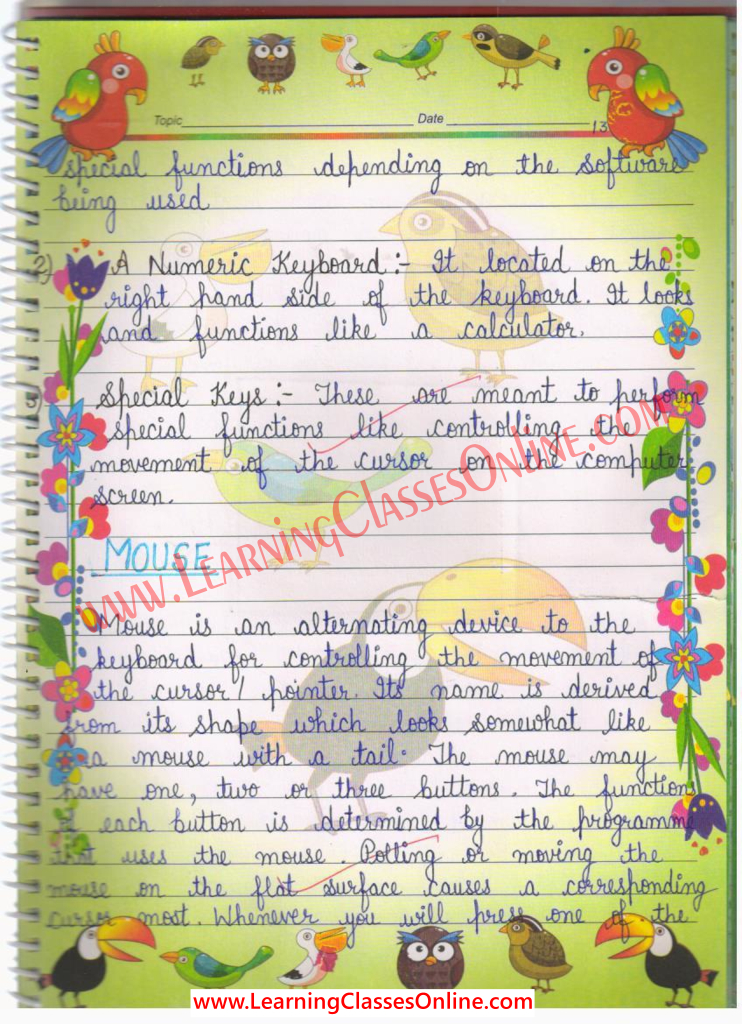 Topic Date 13
special functions depending on the software
being used
2) A Numeric Keyboard :- It located on the
right hand side of the keyboard. It looks
and functions like a calculator.
3) Special Keys :- These are meant to perform
special functions like controlling the
movement of the cursor on the computer
screen.
www.LearningClassesOnline.com
MOUSE
Mouse is an alternating device to the
keyboard for controlling the movement of
the cursor/ pointer. Its name is derived
from its shape which looks somewhat like
a mouse with a tail. The mouse may
have one, two or three buttons. The functions
of each button is determined by the programme
that uses the mouse. Potting or moving the
mouse on the flat surface causes a corresponding
cursor most. Whenever you will press one of the
www.LearningClassesOnline.com